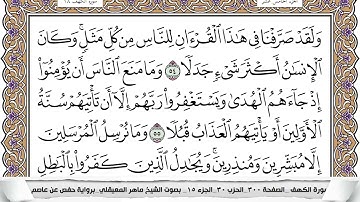 وَلَقَدْ صَرَّفْنَا فِي هَٰذَا ٱلْقُرْءَانِ لِلنَّاسِ مِن كُلِّ مَثَلٍۚ وَكَانَ
ٱلْإِنسَٰنُ أَكْثَرَ شَىْءٍ جَدَلًا ٥٤ وَمَا مَنَعَ ٱلنَّاسَ أَن يُؤْمِنُوٓا۟
إِذْ جَآءَهُمُ ٱلْهُدَىٰ وَيَسْتَغْفِرُوا۟ رَبَّهُمْ إِلَّآ أَن تَأْتِيَهُمْ سُنَّةُ
ٱلْأَوَّلِينَ أَوْ يَأْتِيَهُمُ ٱلْعَذَابُ قُبُلًا ٥٥ وَمَا نُرْسِلُ ٱلْمُرْسَلِينَ
إِلَّا مُبَشِّرِينَ وَمُنذِرِينَۚ وَيُجَٰدِلُ ٱلَّذِينَ كَفَرُوا۟ بِٱلْبَٰطِلِ
سورة الكهف_ الصفحة ٣٠٠_ الحزب ٣٠_ الجزء ١٥_ بصوت الشيخ ماهر المعيقلي برواية حفص عن عاصم